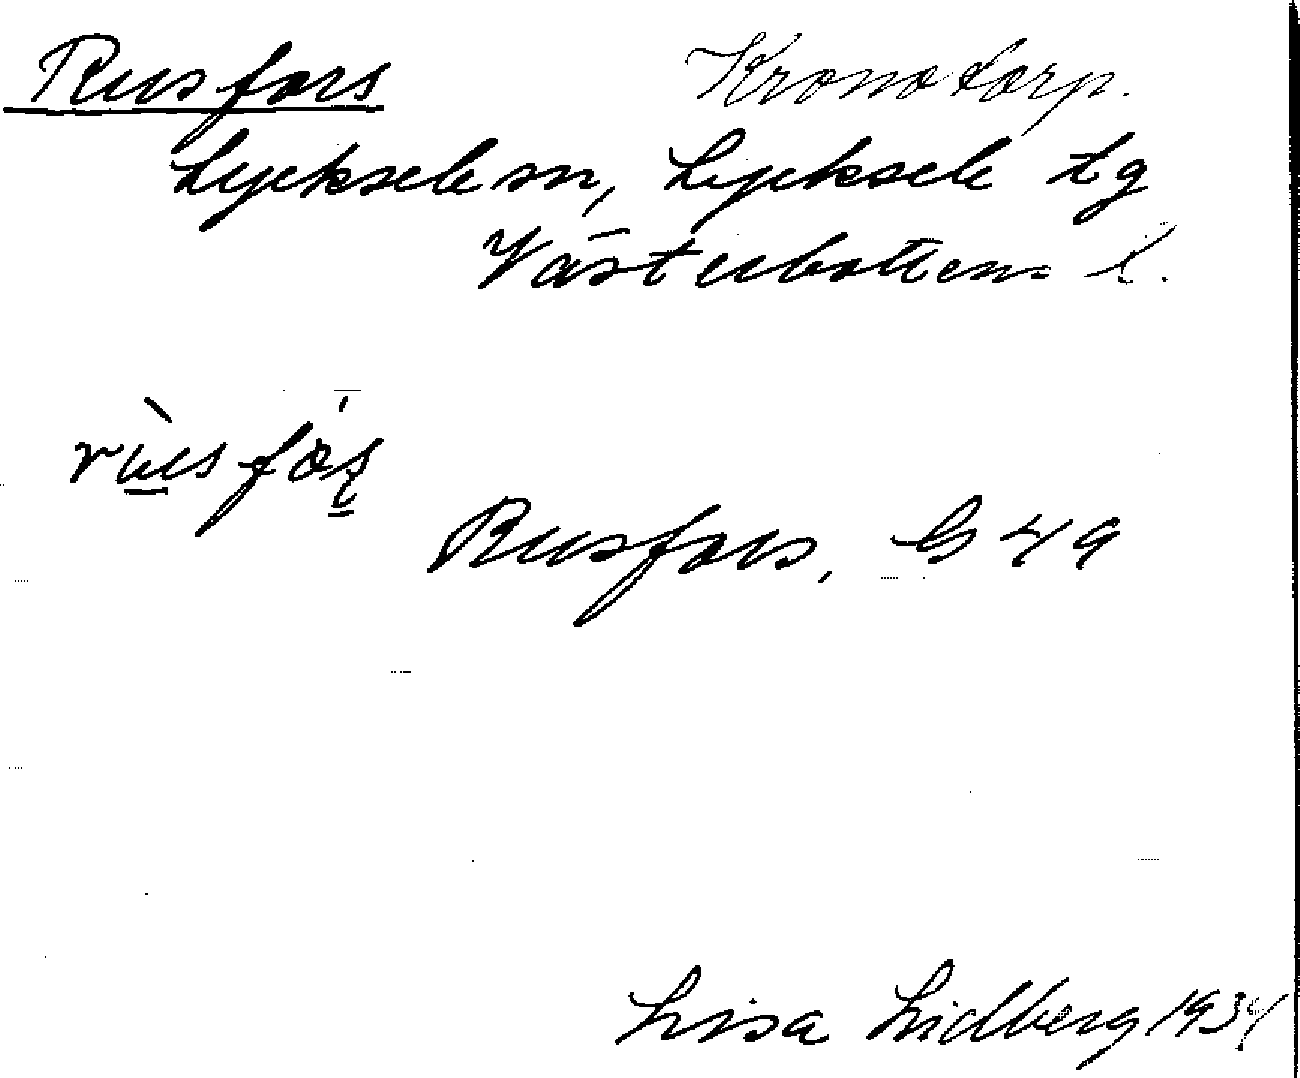 Rusfors Kronotorp.
Lycksele sn, Lycksele lg
Västerbottens l.
Rusfors, G 49
Lisa Lidberg 1934